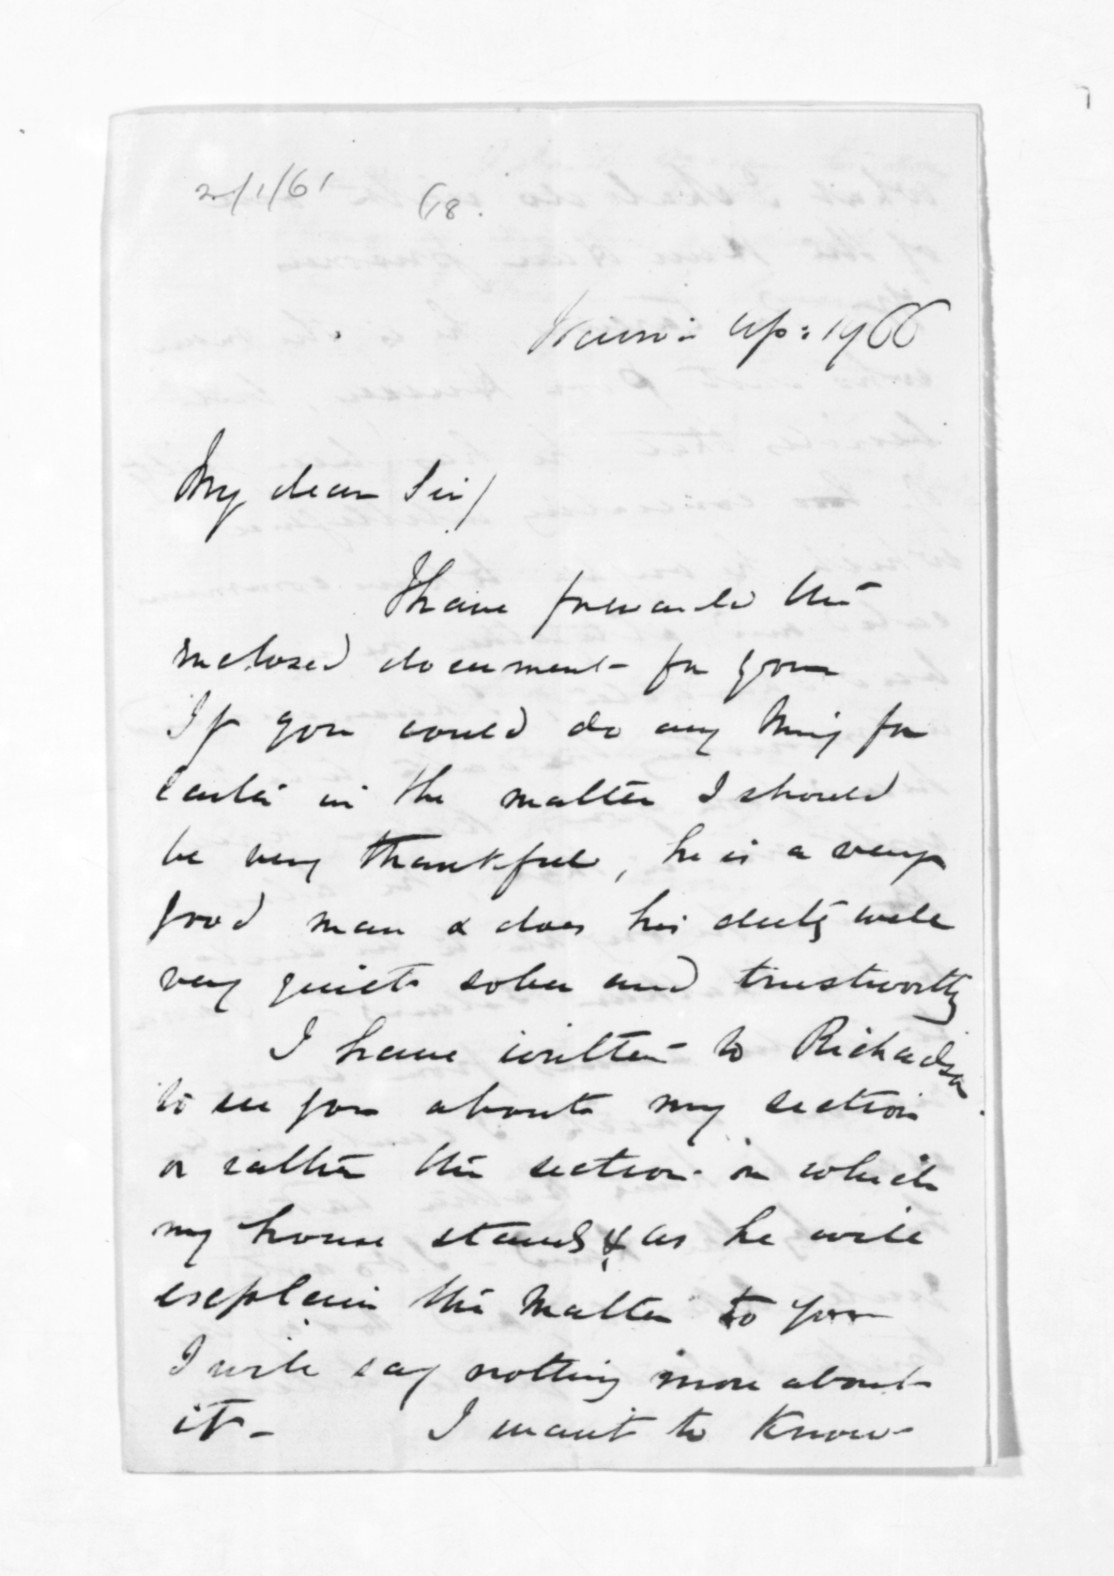 2/1/61
68.
Wairoa Ap: 19/66
My dear Sir/
I have forwarded this
enclosed document for you
If you could do any thing for
in the matter I should
be very thankful, he is a very
good man & does his duty well
very quiet sober and trustworthy
I have written to Richardson
to see you about my section
or rather the section on which
my house stands & as he will
explain the Matter to you
I will say nothing more about
it - I want to know